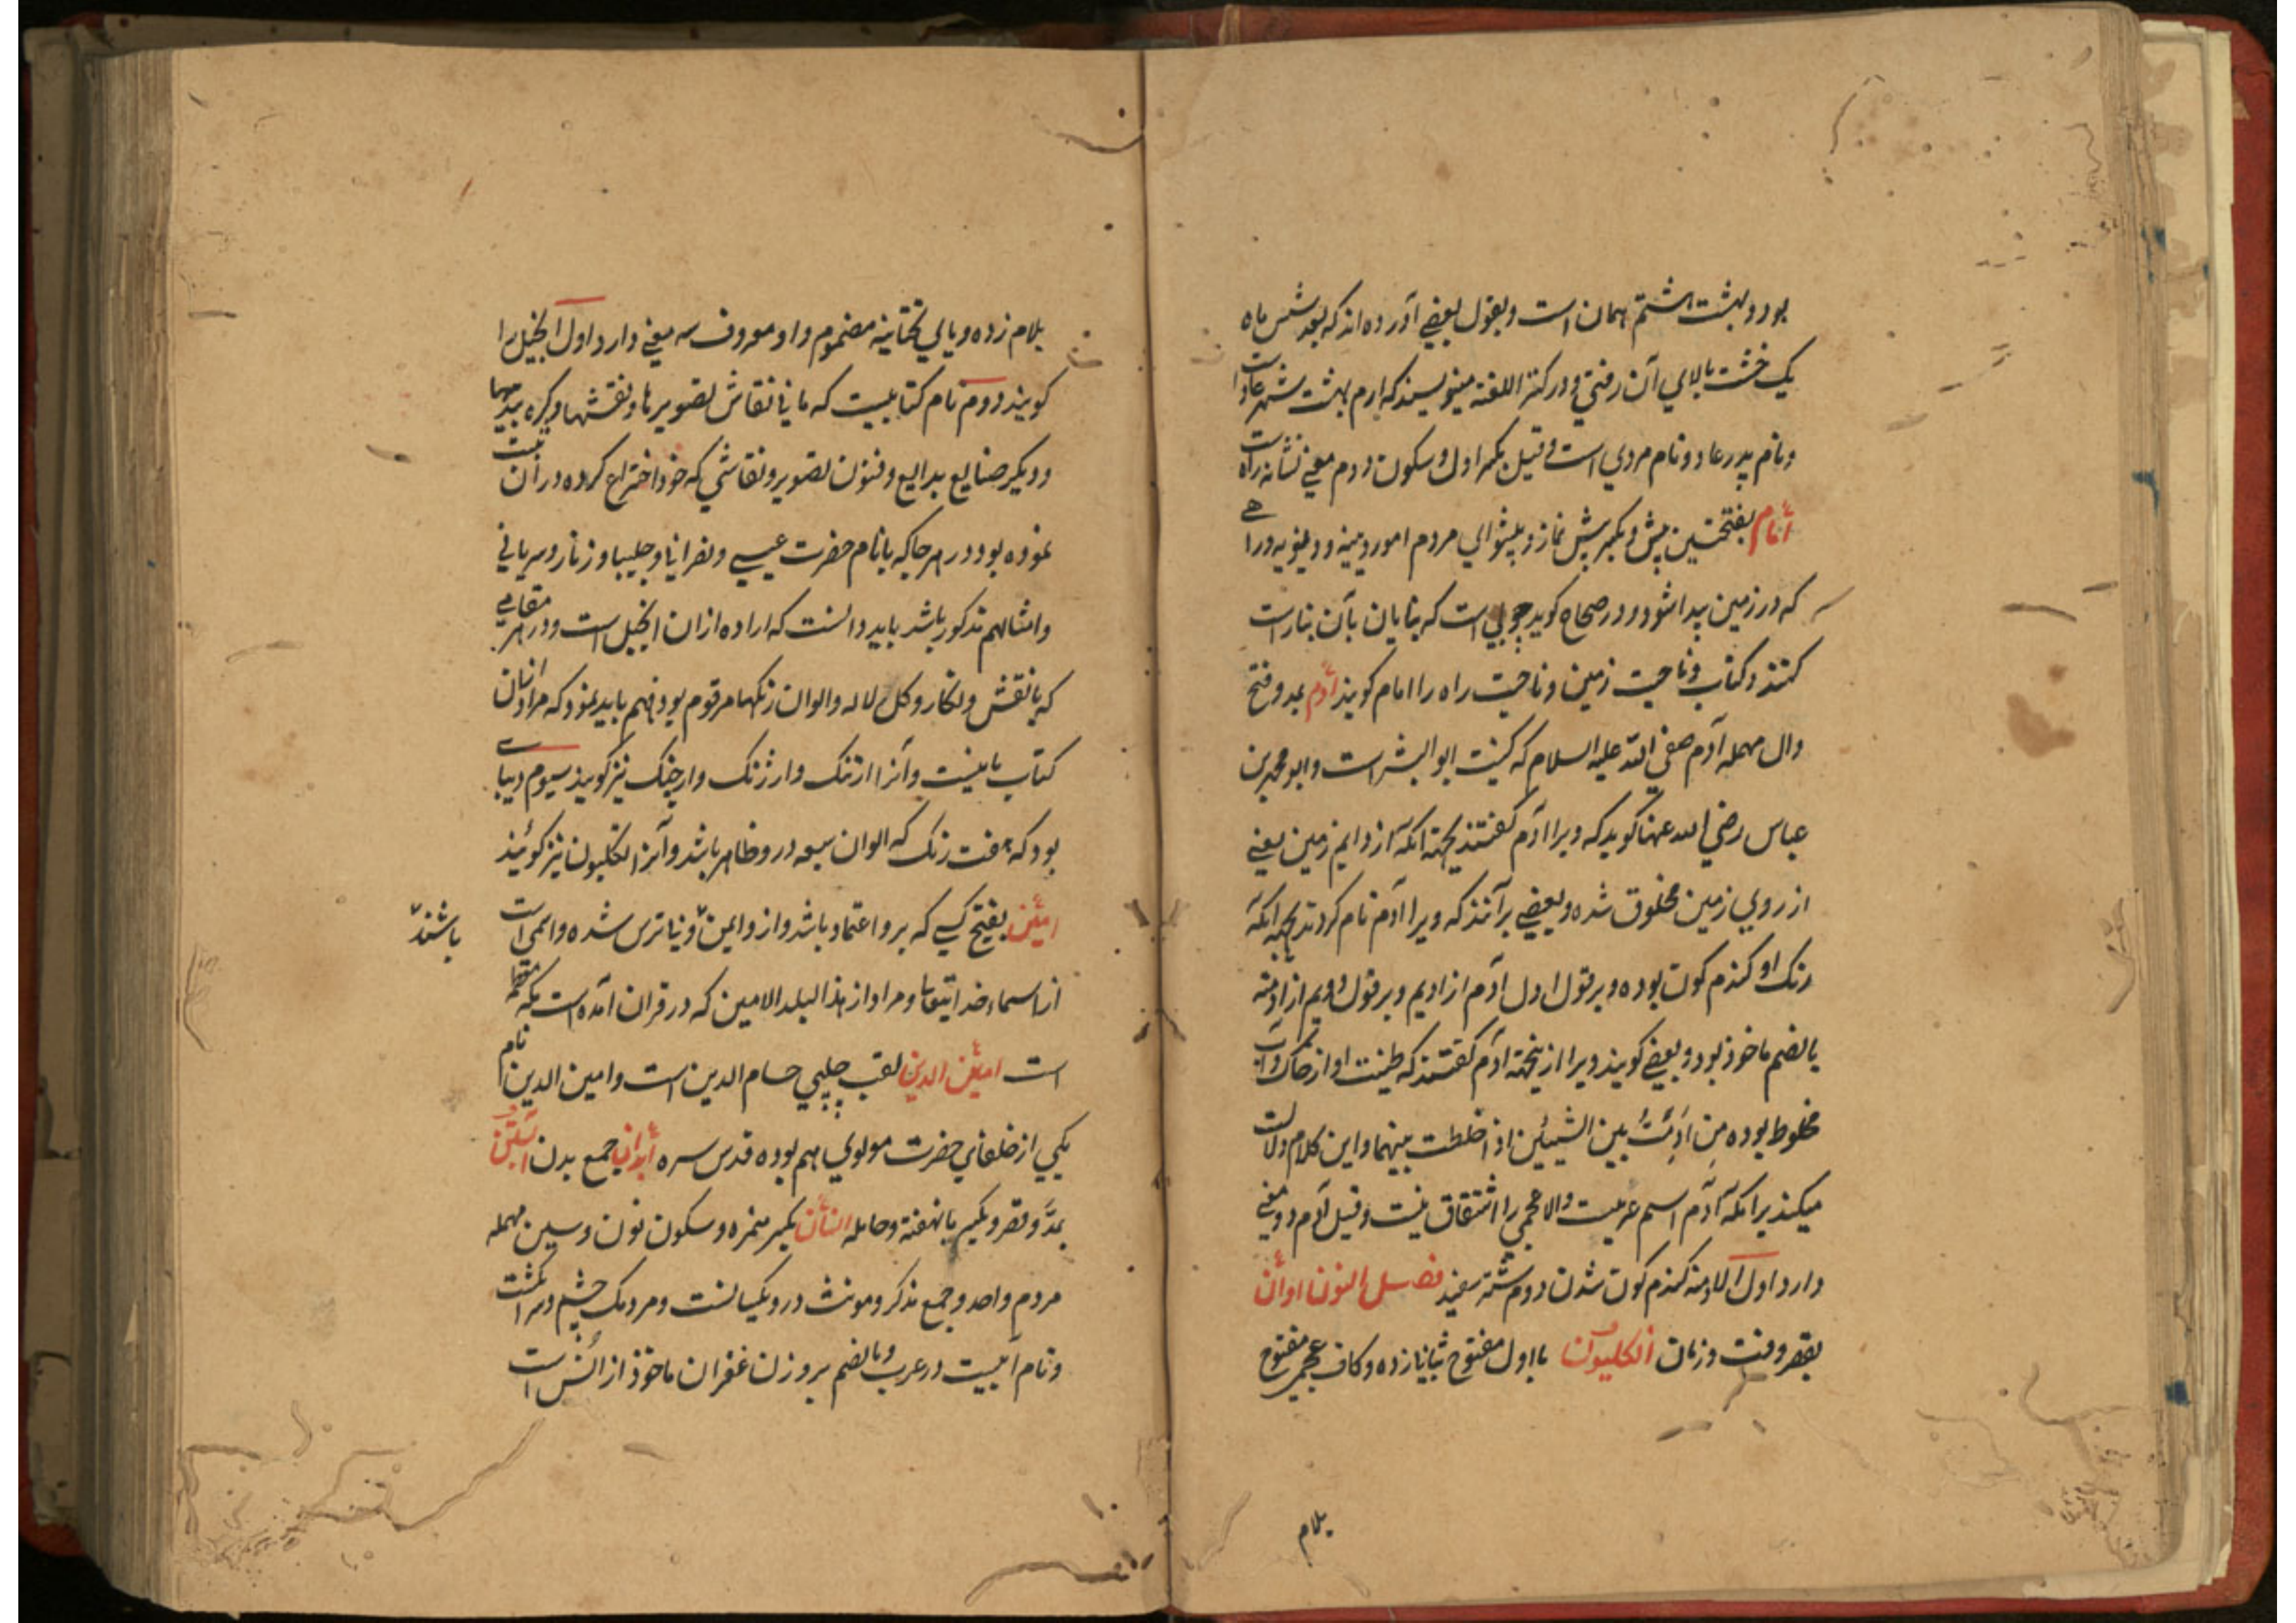 بود و بهشت هشتم همان است و بقول بعضے آورده اند که بعد شش ماه
یک خشت بالای آن رفتی و در کنز اللغته مینویسند که ارم بهشت شهر عاد است
و نام پدر عاد و نام مردی است و قیل بکسر اول و سکون دوم معنے نشانه راه است
أمام بفتحتین پیش و بکسر پیش نماز و پیشوای مردم امور دینیه و دنیویه و راهے
که در زمین پیدا شود و در صحاح کوید چوبی است که بنایان بآن بنا راست
کنند و کتاب و ناحیت زمین و ناحیت راه را امام کویند أدم بمد و فتح
دال مهمله آدم صفی الله علیه السلام که کنیت ابو البشر است و ابو محمد بن
عباس رضی الله عنهما کوید که ویرا آدم کفتند بجهته انکه از ادیم زمین یعنے
از روی زمین مخلوق شده و بعضے برآنند که ویرا آدم نام کردند بجهته انکه
رنک او کندم کون بوده و بر قول اول آدم از ادیم و بر قول دویم از ادمته
بالضم ماخوذ بود و بعضے کویند ویرا ازینجهته آدم کفتند که طینت او از خاک و آب
مخلوط بوده مِن اَدَمْتُ بین الشیئین اذا خلطت بینهما و این کلام دلالت
میکند برانکه آدم اسم عربیت والا عجمی را اشتقاق نیست و قیل آدم دو معنی
دارد اول الادمته کندم کون شدن دوم شتر سفید فصل النون اوأن
بقصر وقت و زمان أنکلیون با اول مفتوح بثانی زده و کاف عجمی مفتوح
بلام
بلام زده و یای تحتانیه مضموم و واو معروف سه معنے دارد اول انجیل را
کویند دوم نام کتابیست که مانی نقاش تصویرها و نقشها و کره بندیها
و دیکر صنایع بدایع و فنون تصویر و نقاشی که خود اختراع کرده در آن ثبت
نموده بود و در هر جا که با نام حضرت عیسے و نصرانیا و چلیپا و زنار و سریانی
و امثالهم مذکور باشد باید دانست که اراده ازان انجیل است و در هر مقامے
که با نقش و نکار و کل و لاله و الوان رنکها مرقوم بود فهم باید نمود که مراد ازان
کتاب مانیست و آنرا ارتنک و ارژنک و ارچنک نیز کویند سیوم دیباے
بود که هفت رنک که الوان سبعه در و ظاهر باشد و آنرا انکلیون نیز کوئیند
امئین بفتح کسے که برو اعتماد باشد و ازو ایمن و نیاترس شده و اسمی است
باشند
از اسماء خدایتعالی و مراد از هذا البلد الامین که در قران آمده است مکه معظمه
است امئین الدین لقب چلپی حسام الدین است و امین الدین نام
یکی از خلفای حضرت مولوی هم بوده قدس سره أبدان جمع بدن أبستن
بمدّ و قصر و بکسر با نهفته و حامله انسأن بکسر همزه و سکون نون و سین مهمله
مردم واحد و جمع مذکر و مونث درو یکسانست و مردمک چشم و سر انکشت
و نام آبیست در عرب و بالضم بر وزن غفران ماخوذ از انس است